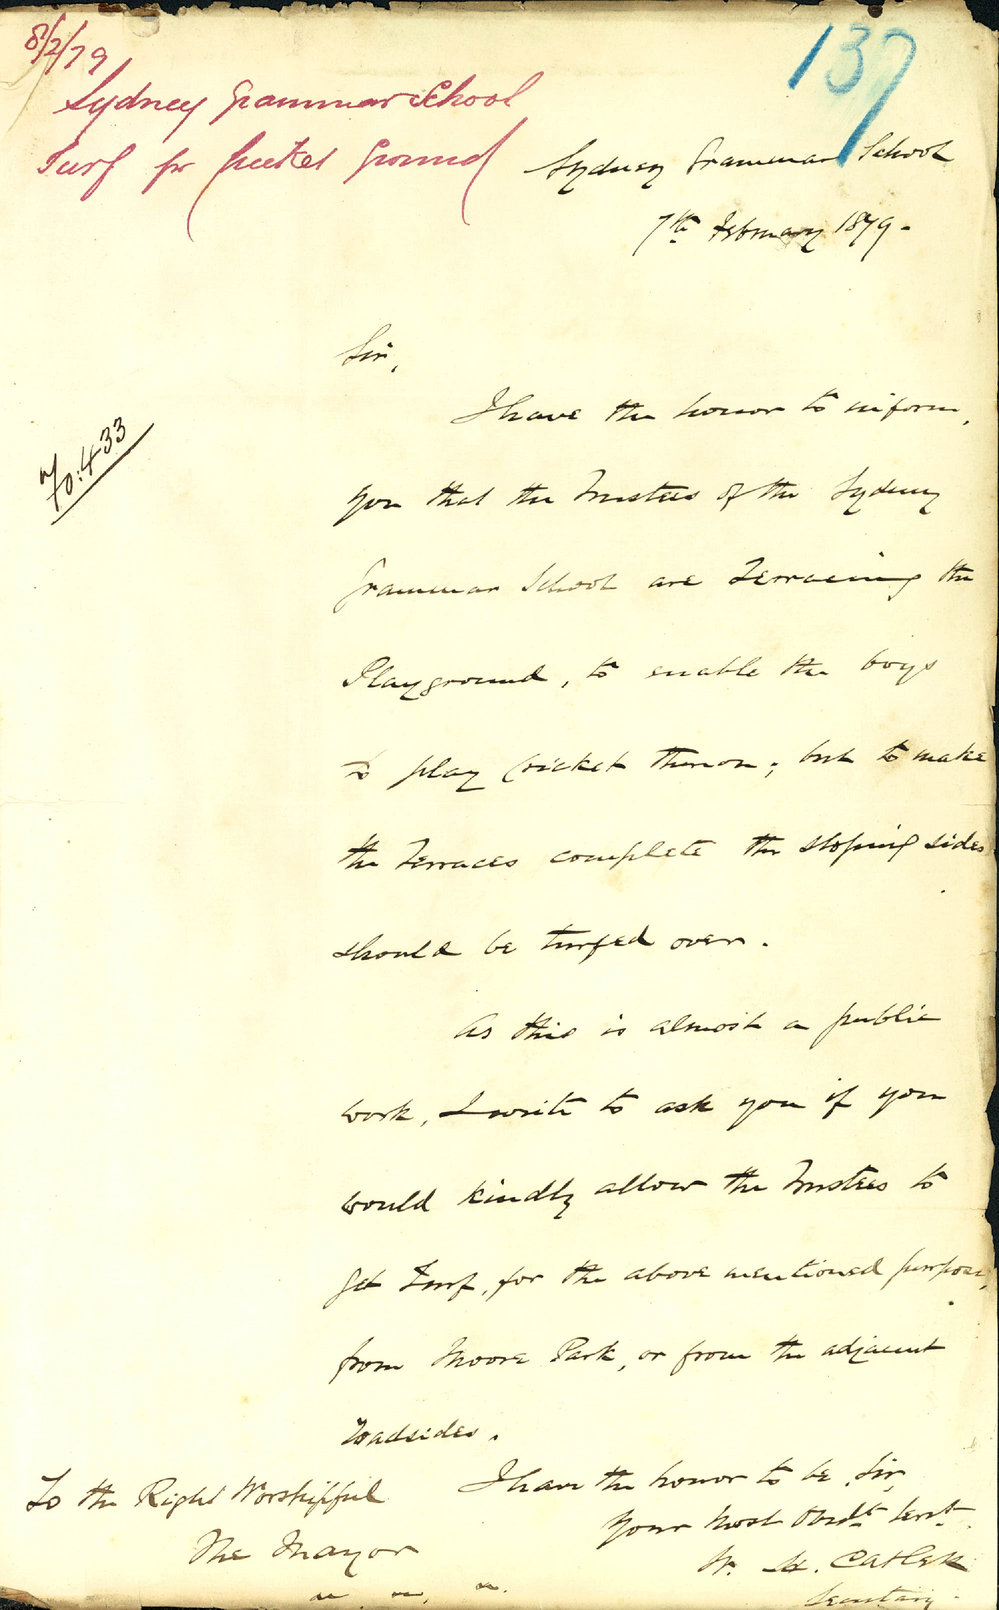 8/2/79
137
Sydney Grammar School
Turf for Cricket Ground
Sydney Grammar School
7th February 1879.
Sir,
I have the honor to inform
70:433
you that the Trustees of the Sydney
Grammar School are Terracing the
Playground, to enable the boys
to play Cricket thereon; but to make
the Terraces complete the sloping sides
should be turfed over.
As this is almost a public
work, I write to ask you if you
would kindly allow the Trustees to
get Turf, for the above mentioned purpose,
from Moore Park, or from the adjacent
roadsides.
I have the honor to be, Sir,
Your most Obedt Servt
W. H. Catlett
Secretary
To the Right Worshipful
The Mayor